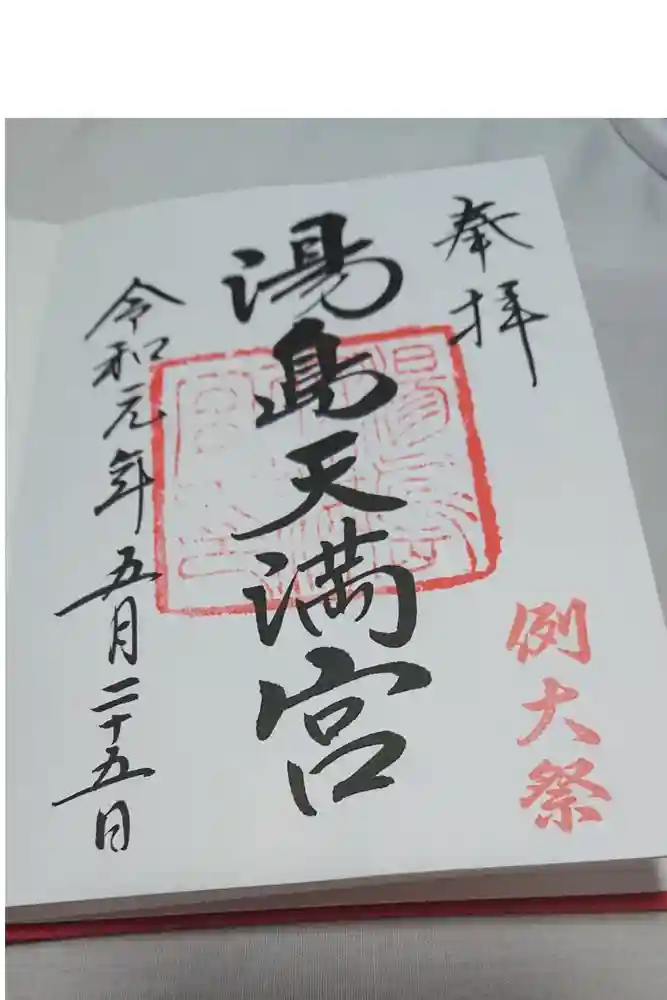 奉拝
湯島天満宮
令和元年五月二十五日
例大祭